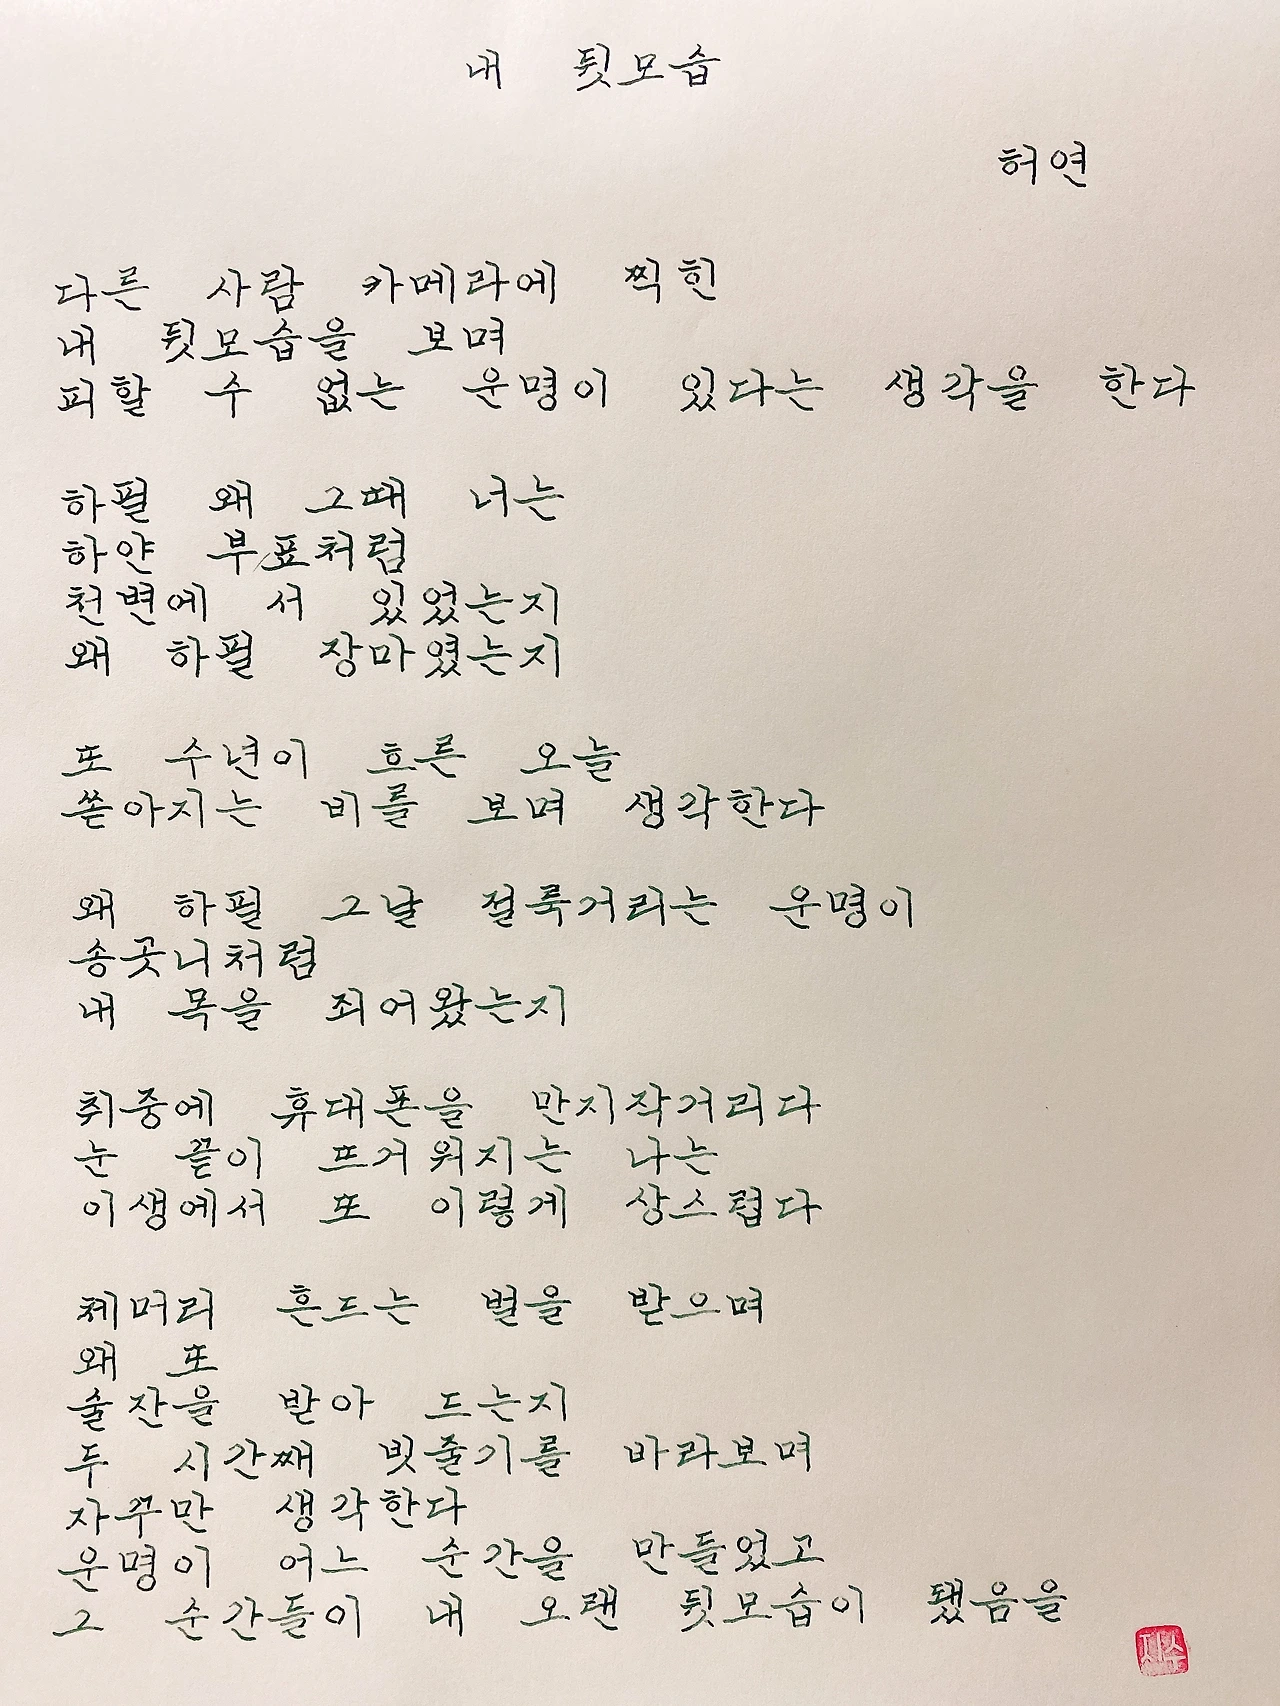 내 뒷모습
허연
다른 사람 카메라에 찍힌
내 뒷모습을 보며
피할 수 없는 운명이 있다는 생각을 한다
하필 왜 그때 너는
하얀 부표처럼
천변에 서 있었는지
왜 하필 장마였는지
또 수년이 흐른 오늘
쏟아지는 비를 보며 생각한다
왜 하필 그날 절룩거리는 운명이
송곳니처럼
내 목을 죄어왔는지
취중에 휴대폰을 만지작거리다
눈 끝이 뜨거워지는 나는
이생에서 또 이렇게 상스럽다
체머리 흔드는 벌을 받으며
왜 또
술잔을 받아 드는지
두 시간째 빗줄기를 바라보며
자꾸만 생각한다
운명이 어느 순간을 만들었고
그 순간들이 내 오랜 뒷모습이 됐음을
지수